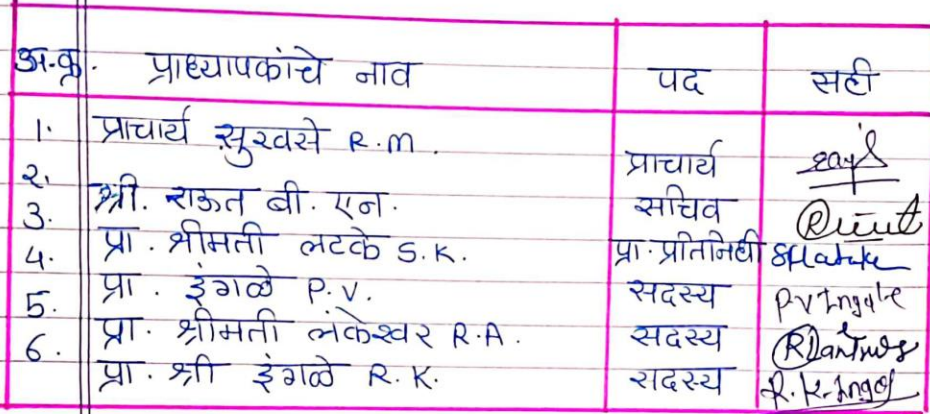 अ.क्र. प्राध्यापकांचे नाव पद सही
1. प्राचार्य सुरवसे R.M. प्राचार्य
2. श्री. राऊत बी. एन. सचिव
3. प्रा. श्रीमती लटके S.K. प्रा. प्रतिनिधी
4. प्रा. इंगळे P.V. सदस्य P V Ingale
5. प्रा. श्रीमती लंकेश्वर R.A. सदस्य
6. प्रा. श्री इंगळे R.K. सदस्य